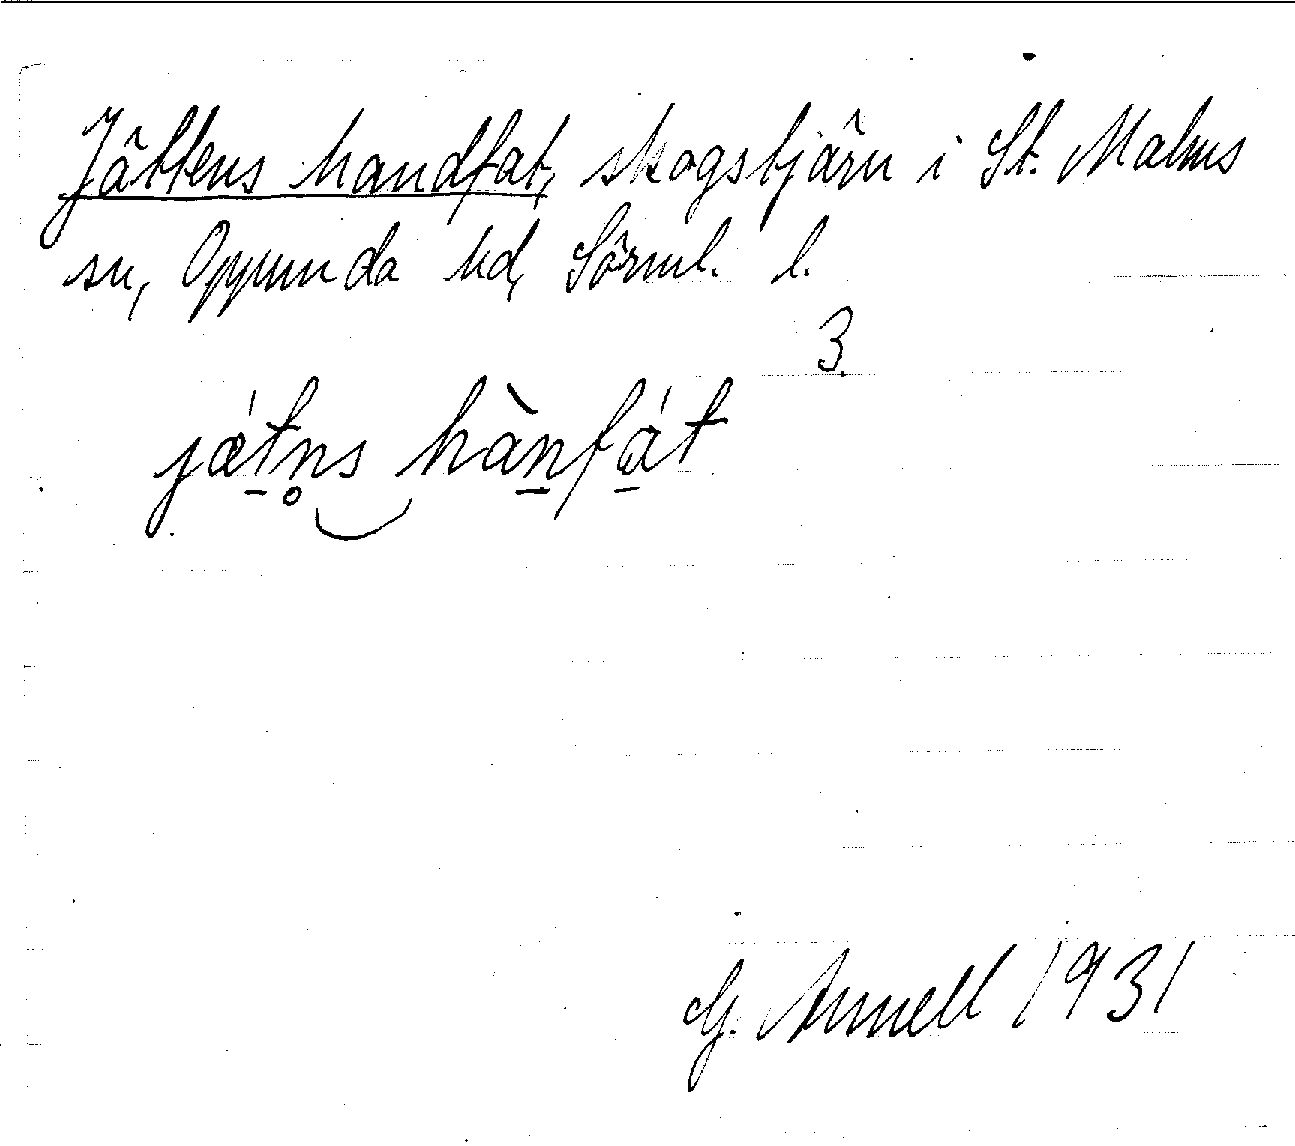 Jättens handfat, skogstjärn i St. Malms
sn, Oppunda hd, Sörml. l.
3.
jǽt̠n̥s‿hàn̠fá̠t
G. Annell 1931